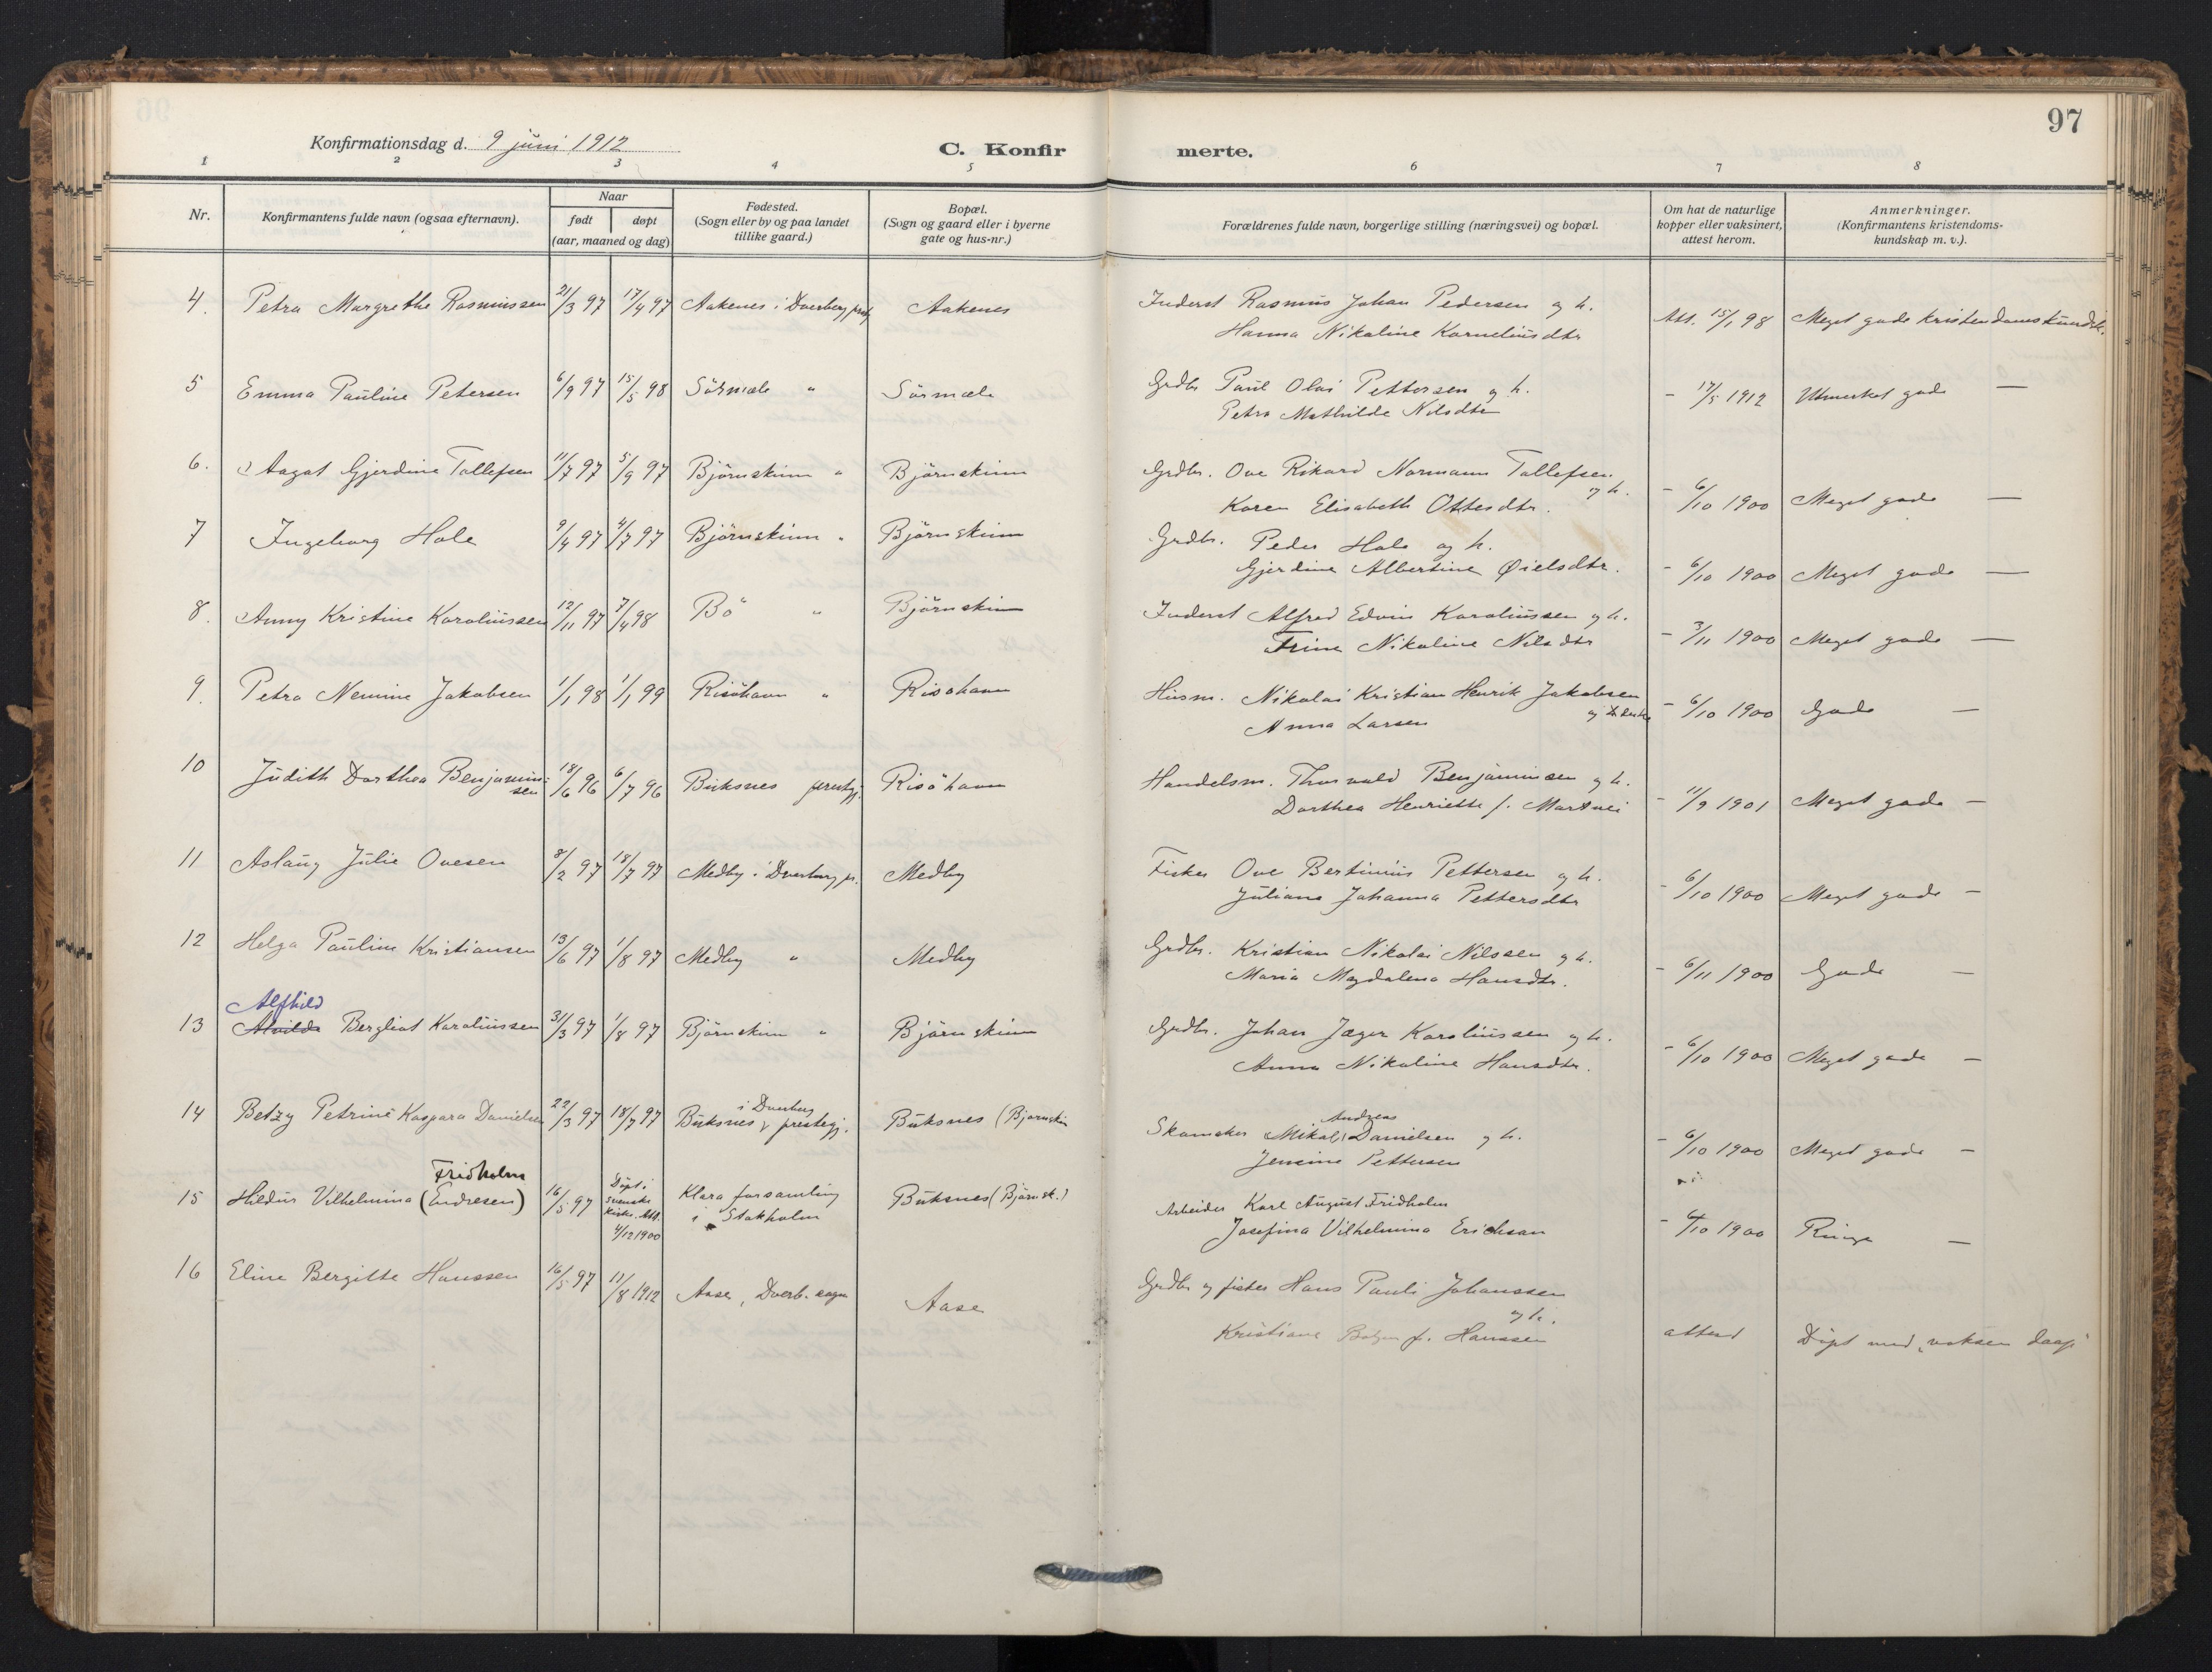 97
Konfirmationsdag d. 9 juni 1912
C. Konfirmerte.
1 2 3 4 5 6 7 8
Nr. Konfirmantens fulde navn (ogsaa efternavn). Naar født døpt (aar, maaned og dag) Fødested. (Sogn eller by og paa landet tillike gaard.) Bopæl. (Sogn og gaard eller i byerne gate og hus-nr.) Forældrenes fulde navn, borgerlige stilling (næringsvei) og bopæl. Om hat de naturlige kopper eller vaksinert, attest herom. Anmerkninger. (Konfirmantens kristendomskundskap m. v.).
4. Petra Margrethe Rasmussen 21/3 97 17/4 97 Aakenes i Dverberg prstg Aakenes Inderst Rasmus Johan Pedersen og h. Att. 15/1 98 Meget gode kristendomskundsk.
Hanna Nikoline Korneliusdtr
5 Emma Pauline Petersen 6/9 97 15/5 98 Sörmæle " Sörmæle Grdbr Paul Olai Pettersen og h. - 17/5 1912 Utmerket gode —
Petra Mathilde Nilsdtr
6. Aagot Gjerdine Tollefsen 11/7 97 5/9 97 Björnskinn " Björnskinn Grdbr. Ove Rikard Normann Tollefsen og h. - 6/10 1900 Meget gode —
Karen Elisabeth Ottesdtr.
7 Ingeborg Hole 9/4 97 4/7 97 Björnskinn " Björnskinn Grdbr. Peder Hole og h. - 6/10 1900 Meget gode —
Gjerdine Albertine Øielsdtr.
8. Anny Kristine Karoliussen 12/11 97 7/4 98 Bö " Björnskinn Inderst Alfred Edvin Karoliussen og h. - 3/11 1900 Meget gode —
Trine Nikoline Nilsdtr
9. Petra Nemine Jakobsen 1/1 98 1/1 99 Risöhavn " Risöhavn Husm. Nikolai Kristian Henrik Jakobsen - 6/10 1900 Gode —
Anna Larsen
10 Judith Dorthea Benjaminsen 18/6 96 6/7 96 Buksnes prestgj. Risöhavn Handelsm. Thorvald Benjaminsen og h. - 11/9 1901 Meget gode —
Dorthea Henriette f.
11 Aslaug Julie Ovesen 8/2 97 18/7 97 Medby i Dverberg pr. Medby Fisker Ove Bertinius Pettersen og h. - 6/10 1900 Meget gode —
Juliane Johanna Pettersdtr
12 Helga Pauline Kristiansen 13/6 97 1/8 97 Medby " Medby Grdbr. Kristian Nikolai Nilssen og h. - 6/11 1900 Gode —
Maria Magdalena Hansdtr.
Alfhild
13 Alvilda Bergliot Karoliussen 31/3 97 1/8 97 Björnskinn " Björnskinn Grdbr. Johan Jæger Karoliussen og h. - 6/10 1900 Meget gode —
Anna Nikoline Hansdtr.
14 Betzy Petrine Kaspara Danielsen 22/3 97 18/7 97 Buksnes i Dverberg prestegj. Buksnes (Bjornskin Skomaker Mikal Andreas Danielsen og h. - 6/10 1900 Meget gode —
Jensine Pettersen
Fridholm
15 Hildur Vilhelmina (Endresen) 16/5 97 Döpt i svenske kirke. Att. 4/12 1900 Klara forsamling i Stokholm Buksnes (Björnsk.) Arbeider Karl August Fridholm - 6/10 1900 Ringe —
Josefina Vilhelmina Erickson
16 Eline Bergitte Hanssen 16/5 97 11/8 1912 Aase, Dverb. sogn Aase Grdbr og fisker Hans Pauli Johanssen og h.
Kristiane f. Hanssen attest Döpt med "voksen daap"